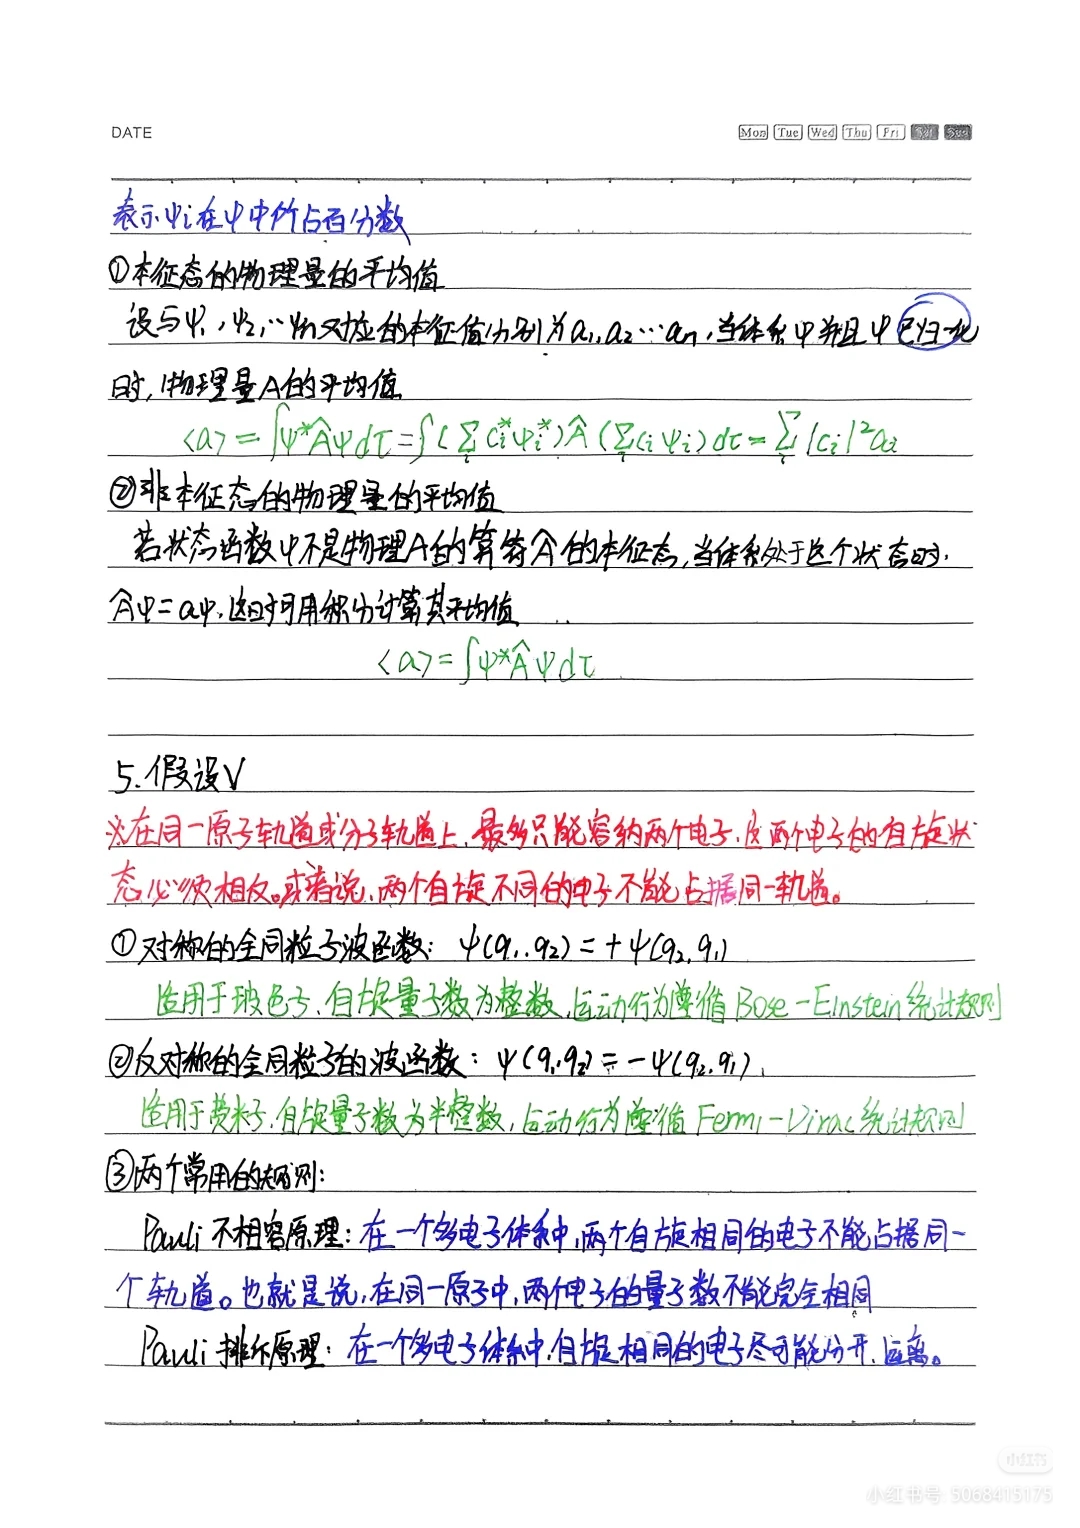 DATE Mon Tue Wed Thu Fri Sat Sun
表示ψi在ψ中所占百分数
①本征态的物理量的平均值
设与ψ₁,ψ₂,…ψn对应的本征值分别为a₁,a₂…an,当体系ψ并且ψ已归一化
时,物理量A的平均值
<a>=∫ψ*Âψdτ=∫(∑ᵢcᵢ*ψᵢ*)Â(∑ᵢcᵢψᵢ)dτ=∑ᵢ|cᵢ|²aᵢ
②非本征态的物理量的平均值
若状态函数ψ不是物理A的算符Â的本征态,当体系处于这个状态时.
Âψ=aψ.这时可用积分计算其平均值
<a>=∫ψ*Âψdτ
5.假设V
※在同一原子轨道或分子轨道上,最多只能容纳两个电子,这两个电子的自旋状
态必须相反。或者说,两个自旋不同的电子不能占据同一轨道。
①对称的全同粒子波函数:ψ(q₁,q₂)=+ψ(q₂,q₁)
适用于玻色子,自旋量子数为整数,运动行为遵循Bose-Einstein统计规则
②反对称的全同粒子的波函数:ψ(q₁,q₂)=-ψ(q₂,q₁).
适用于费米子,自旋量子数为半整数,运动行为遵循Fermi-Dirac统计规则
③两个常用的规则:
Pauli不相容原理:在一个多电子体系中,两个自旋相同的电子不能占据同一
个轨道。也就是说,在同一原子中,两个电子的量子数不能完全相同
Pauli排斥原理:在一个多电子体系中,自旋相同的电子尽可能分开、远离。
小红书
小红书号:5068415175